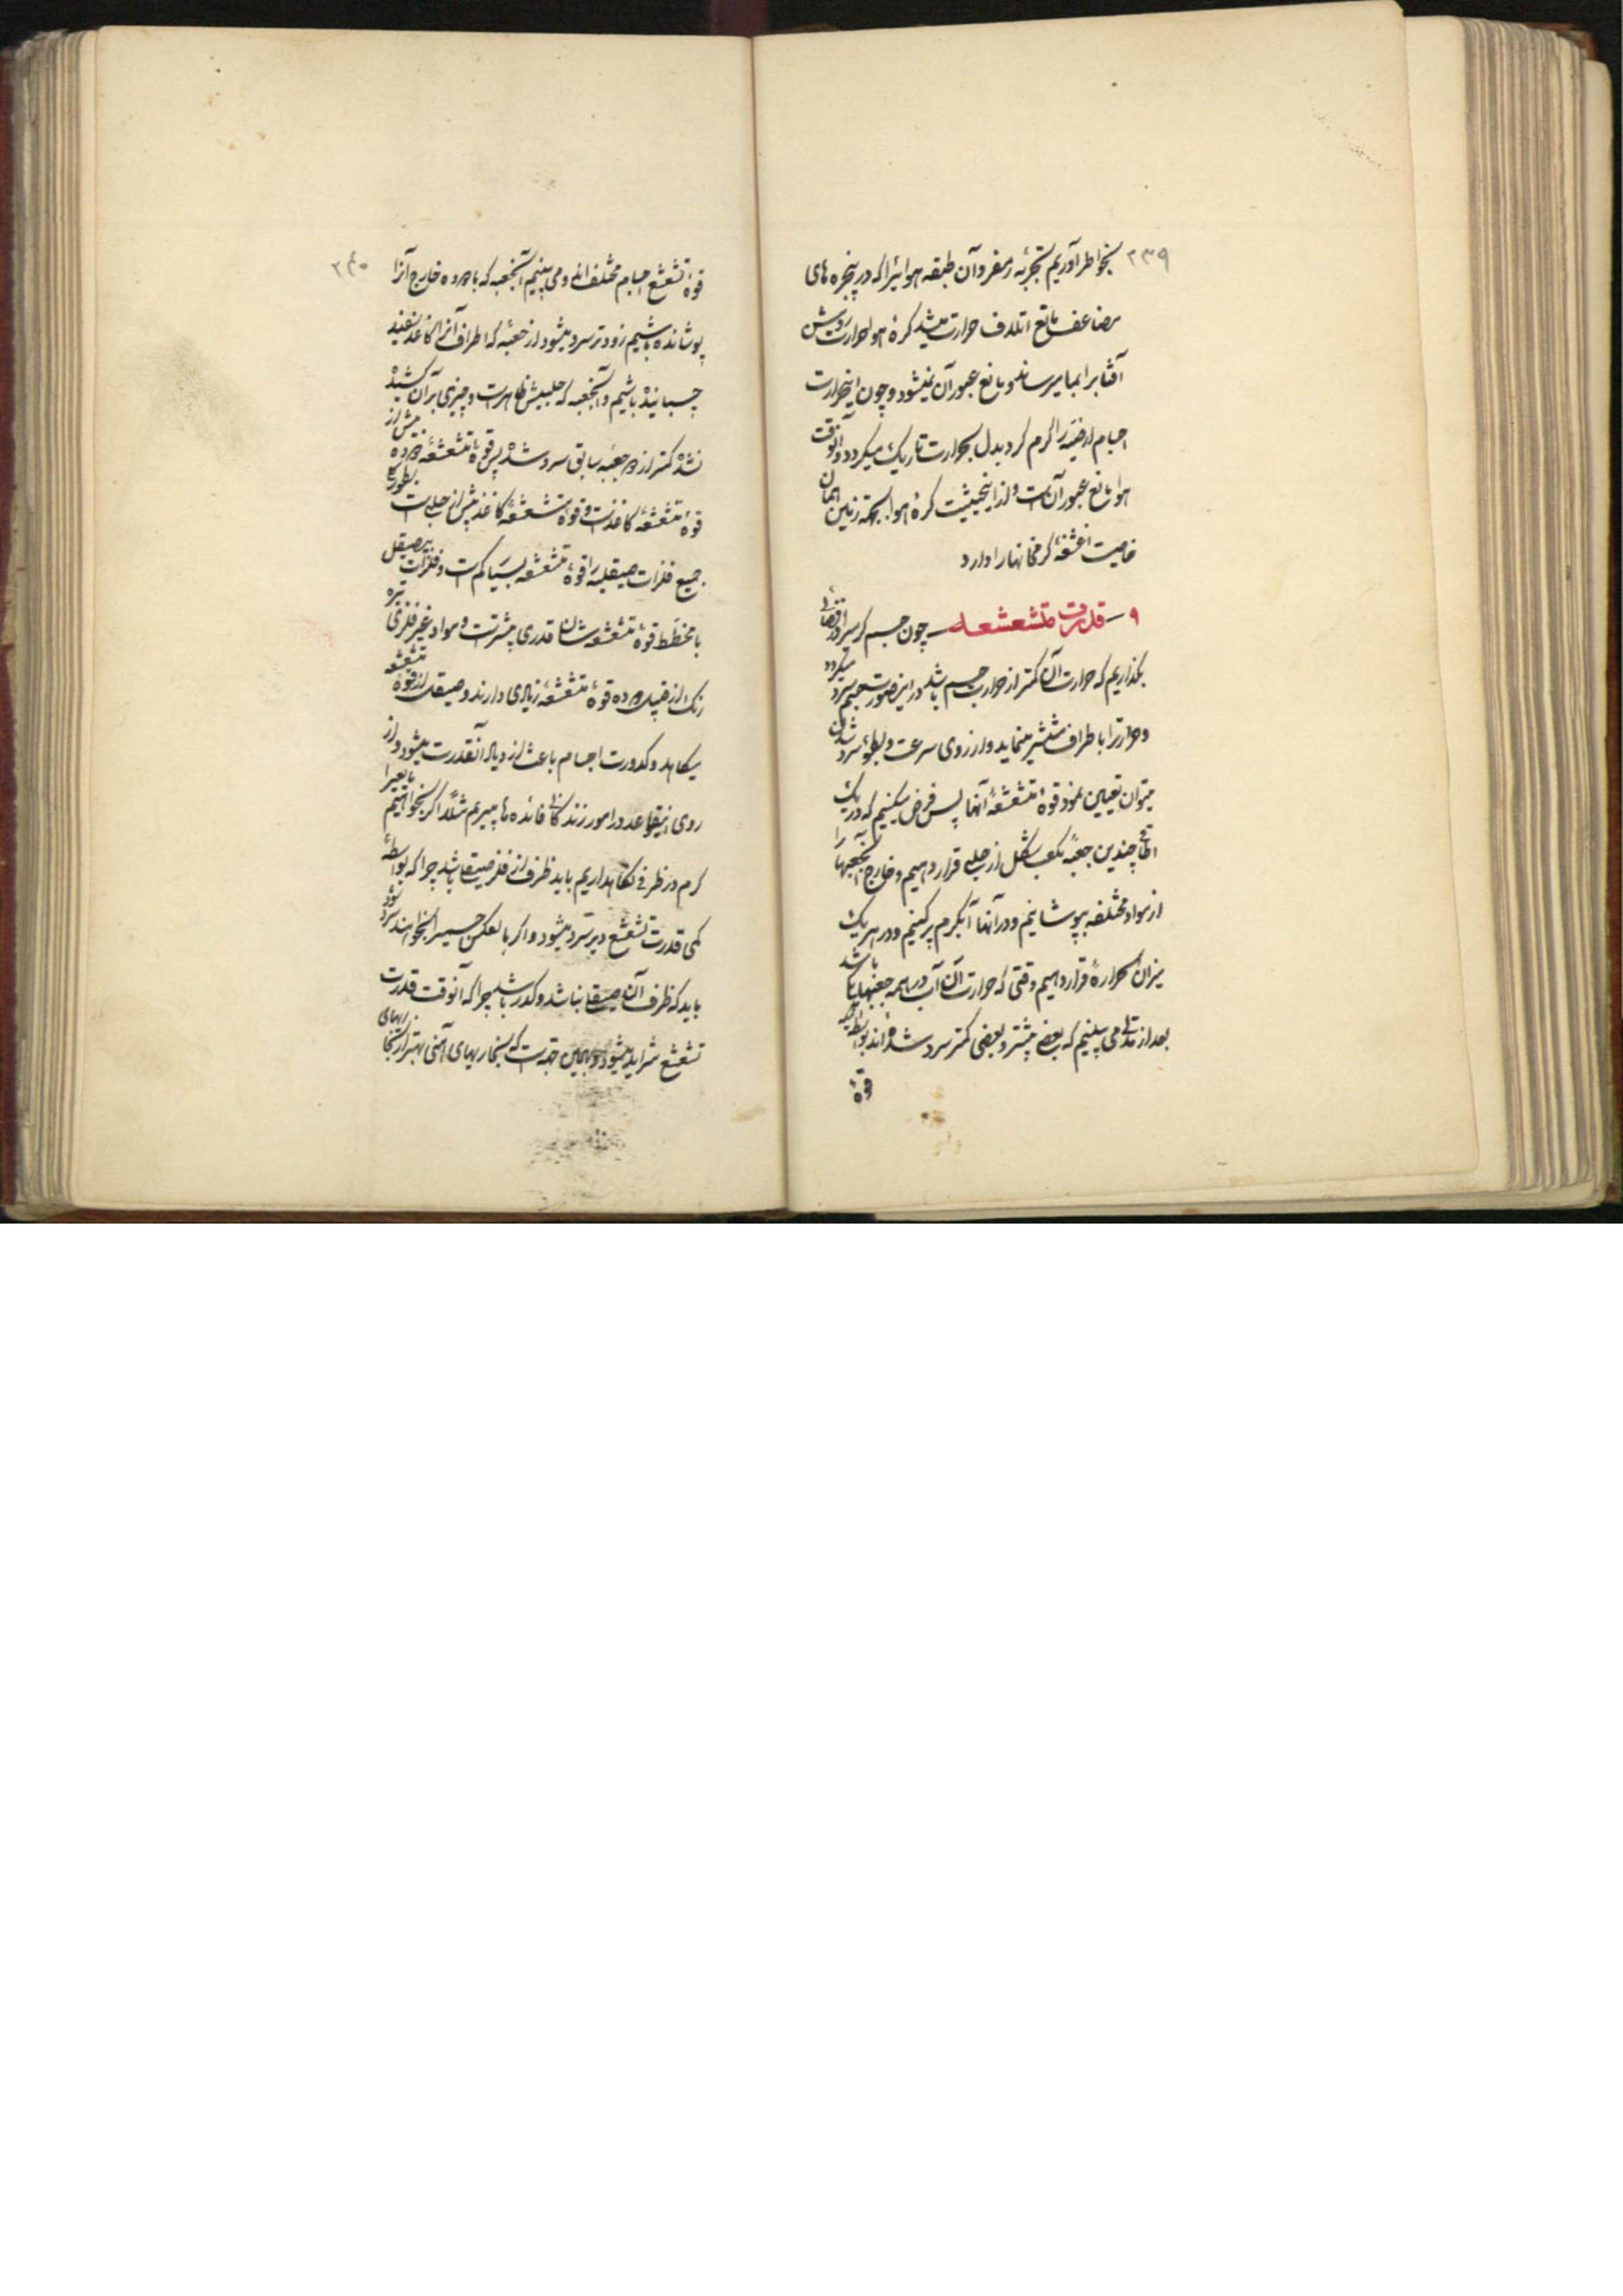 ۲۳۹
بخواطر آوریم تجربه رمفر و آن طبقه هوائیرا که در پنجره های
مضاعف مانع اتلاف حرارت میشد کرهٔ هوا حرارت روشن
آفتابرا بما میرساند و مانع عبور آن نمیشود و چون اینحرارت
اجسام ارضیه را گرم کرد بدل بحرارت تاریک میگردد و آنوقت
هوا مانع عبور آن است و از اینحیثیت کرهٔ هوا بجهة زمین همان
خاصیت اغشیهٔ گرمخانها را دارد
۹ – قدرت متشعشعه – چون جسم گرمیرا در فضائی
بگذاریم که حرارت آن کمتر از حرارت جسم باشد در اینصورت جسم سرد میگردد
و حرارترا باطراف منتشر مینماید و از روی سرعت و بطوء سرد شدن
میتوان تعیین نمود قوهٔ متشعشعهٔ آنها پس فرض میکنیم که در یک
اطاقی چندین جعبهٔ مکعب شکل از حلبی قرار دهیم و خارج آنجعبها را
از مواد مختلفه بپوشانیم و در آنها آبگرم پر کنیم و در هر یک
میزان الحرارهٔ قرار دهیم وقتی که حرارت آن آب در همه جعبها یک باشد
بعد از مدتی می بینیم که بعضی بیشتر و بعضی کمتر سرد شده اند بواسطه آنکه
قوهٔ
۲۴۰
قوهٔ تشعشع اجسام مختلف اند و می بینیم آنجعبه که با دوده خارج آنرا
پوشانده باشیم زودتر سرد میشود از جعبهٔ که اطراف آنرا کاغذ سفید
چسبانیده باشیم و آنجعبه که حلبیش ظاهر است و چیزی بر آن کشیده
نشده کمتر از دو جعبه سابق سرد شده پس قوهٔ متشعشعهٔ دوده بیش از
قوهٔ متشعشعهٔ کاغذ است و قوهٔ متشعشعهٔ کاغذ بیش از حلبی است بطور کلی
جمیع فلزات صیقلیه را قوهٔ متشعشعه بسیار کم است و فلزات بی صیقل
یا مخطط قوهٔ متشعشعه شان قدری بیشتر است و مواد غیر فلزی تیره
رنگ از قبیل دوده قوهٔ متشعشعهٔ زیادی دارند و صیقل از قوهٔ متشعشعه
میکاهد و کدورت اجسام باعث ازدیاد آنقدرت میشود و از
روی اینقواعد در امور زندگانی فائده ها میبریم مثلاً اگر بخواهیم مایعیرا
گرم در ظرفی نگاهداریم باید ظرف از فلز صیقلی باشد چرا که بواسطهٔ
کمی قدرت تشعشع دیرتر سرد میشود و اگر بالعکس جسمیرا بخواهند سرد شود
باید که ظرف آن صیقلی نباشد و کدر باشد چرا که آنوقت قدرت
تشعشع شدید میشود و بهمین جهة است که بخاریهای آهنی بهتر از بخاریهای